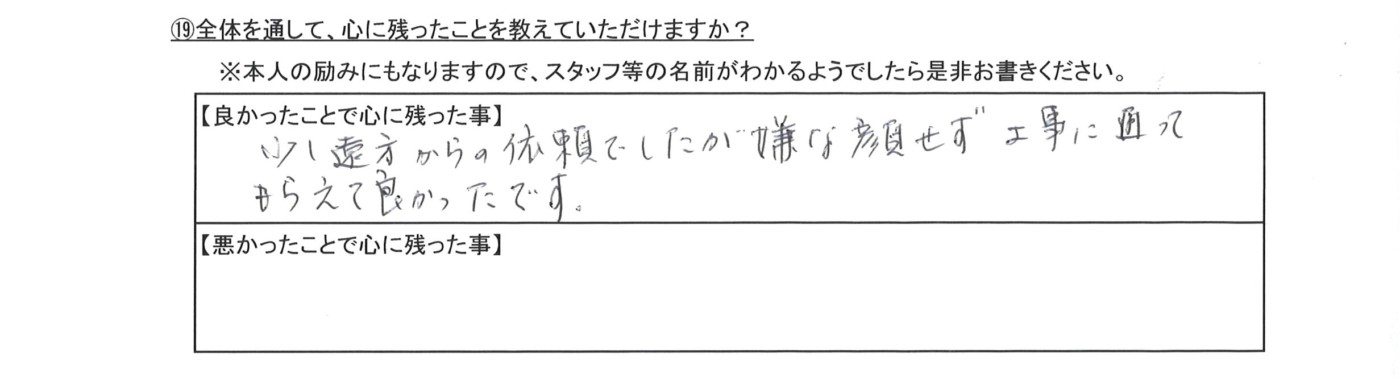 ⑲全体を通して、心に残ったことを教えていただけますか？
※本人の励みにもなりますので、スタッフ等の名前がわかるようでしたら是非お書きください。
【良かったことで心に残った事】
少し遠方からの依頼でしたが嫌な顔せず工事に通って
もらえて良かったです。
【悪かったことで心に残った事】